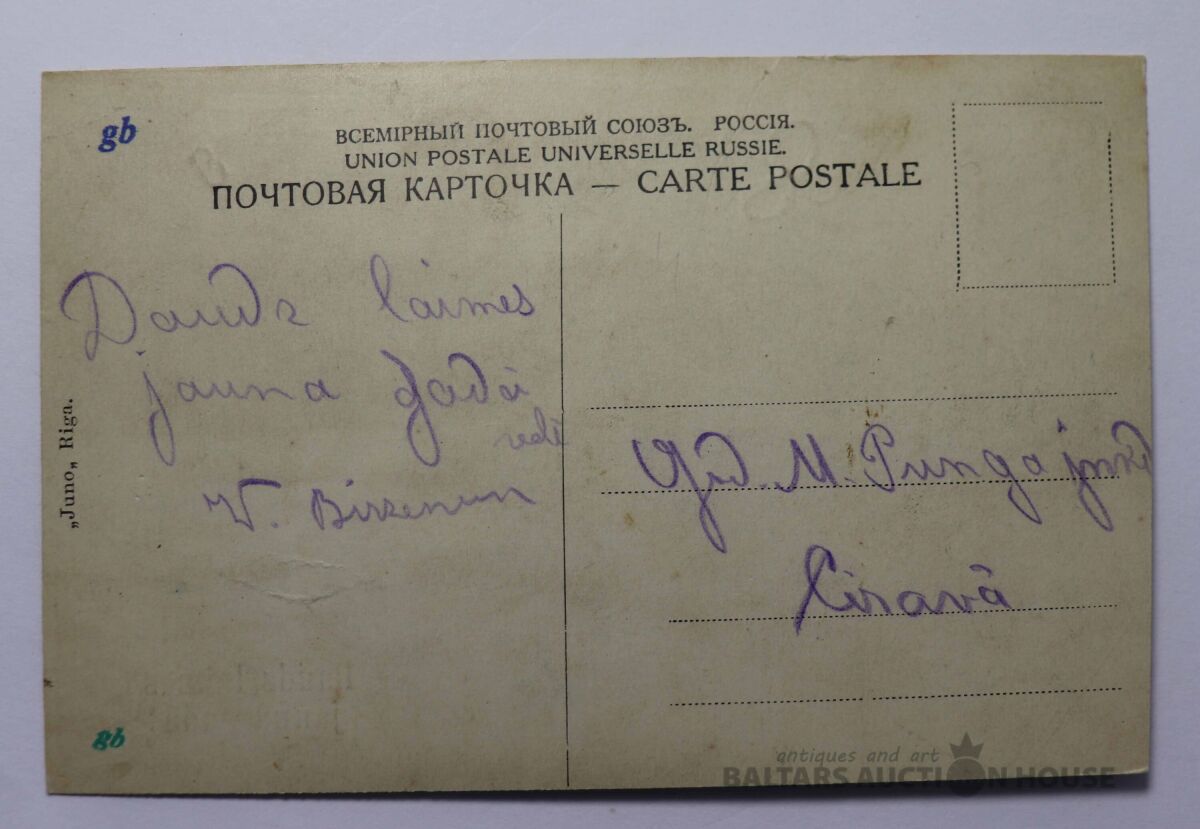 gb
ВСЕМІРНЫЙ ПОЧТОВЫЙ СОЮЗЪ. РОССІЯ.
UNION POSTALE UNIVERSELLE RUSSIE.
ПОЧТОВАЯ КАРТОЧКА — CARTE POSTALE
Daudz laimes
jauna gadā
W.
God. M. Punga
Cīravā
„Juno„ Riga.
gb
antiques and art
BALTARS AUCTION HOUSE